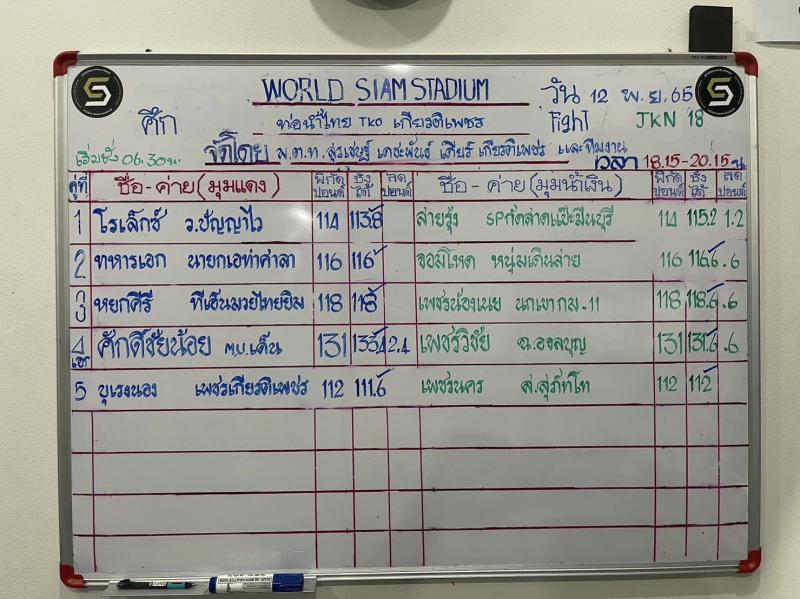 WORLD SIAM STADIUM
วัน 12 พ.ย. 65
ศึก ท่อน้ำไทย TKO เกียรติเพชร Fight JKN 18
เริ่มชั่ง 06.30น. จัดโดย พ.ต.ท. สุรเชษฐ์ เดชะพันธ์ เสียร์ เกียรติเพชร และทีมงาน เวลา 18.15-20.15 น
คู่ที่ ชื่อ-ค่าย (มุมแดง) พิกัด ปอนด์ ชั่ง ได้ ลด ปอนด์ ชื่อ-ค่าย (มุมน้ำเงิน) พิกัด ปอนด์ ชั่ง ได้ ลด ปอนด์
1 โรเล็กซ์ ว.ปัญญาไว 114 113.8 สายรุ้ง SPกัดสาดแป๊ะมีนบุรี 114 115.2 1.2
2 ทหารเอก นายกเอท่าศาลา 116 116 จอมโหด หนุ่มเดินสาย 116 116.6 .6
3 หยกคีรี ทีเอ็นมวยไทยยิม 118 118 เพชรน้องเนย นกเขากม.11 118 118.6 .6
4 เอก ศักดิ์ชัยน้อย ม.บ.เด็น 131 133.4 2.4 เพชรวิชัย ฉ.อจลบุญ 131 131.6 .6
5 บุเรงนอง เพชรเกียรติเพชร 112 111.6 เพชรนคร ส.สุภัทโท 112 112